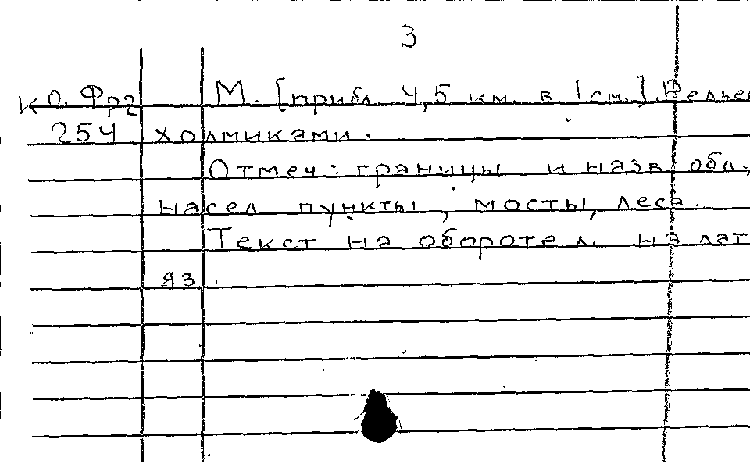 3
К О. Фрг М. [прибл. 4,5 км. в 1 см.] Рельеф
254 холмиками.
Отмеч: границы и назв. обл.,
насел. пункты, мосты, леса.
Текст на обороте л. на лат.
яз.